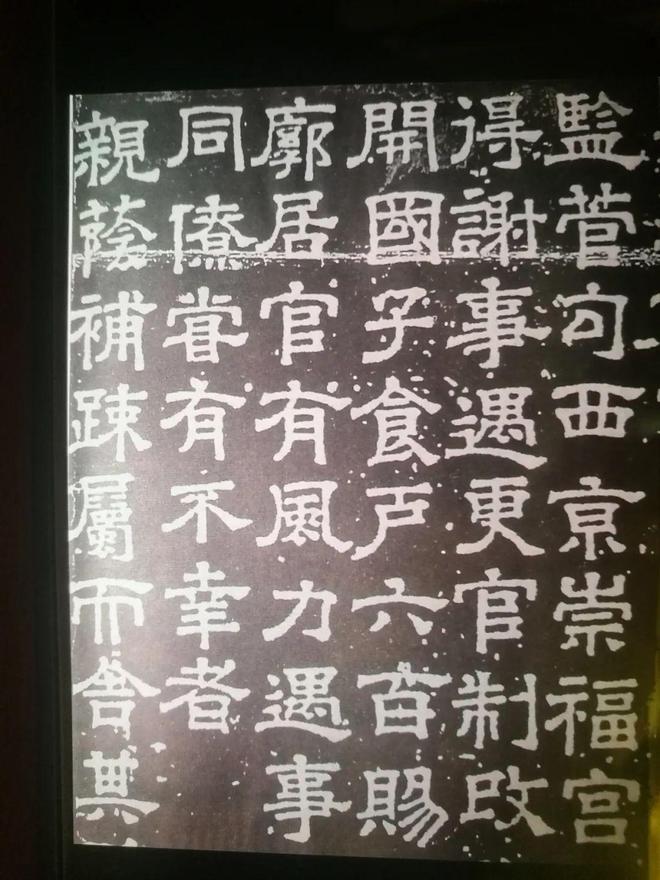 監菅句西京崇福宮
得謝事遇更官制改
開國子食戸六百賜
廓居官有風力遇事
同僚甞有不幸者
親蔭補疎屬而舍其